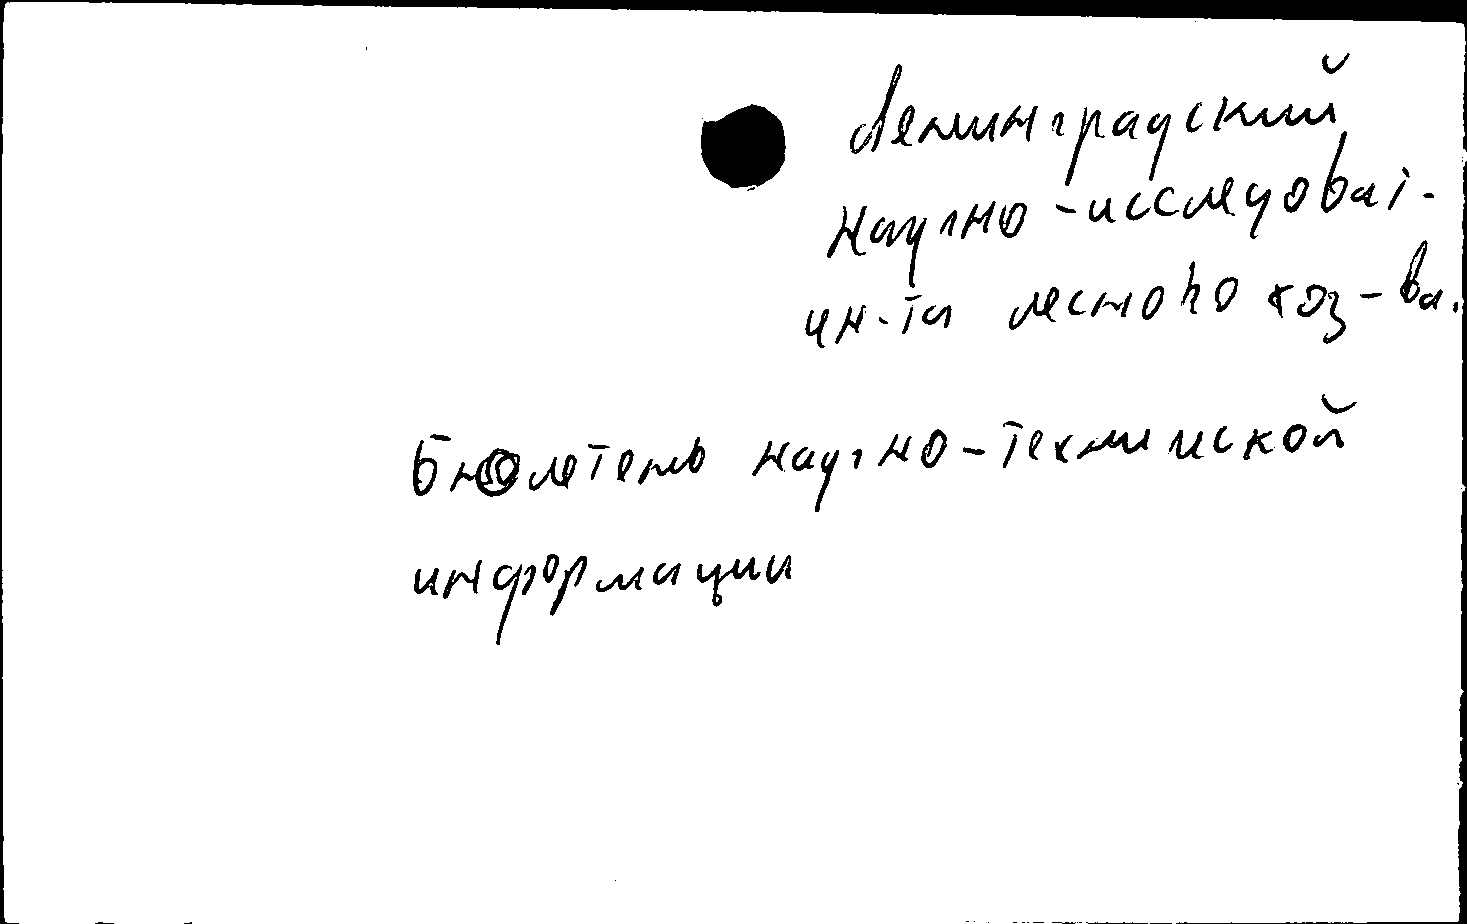 Ленинградский
научно-исследоват.
ин-та лесного хоз-ва.
Бюлетень научно-технической
информации